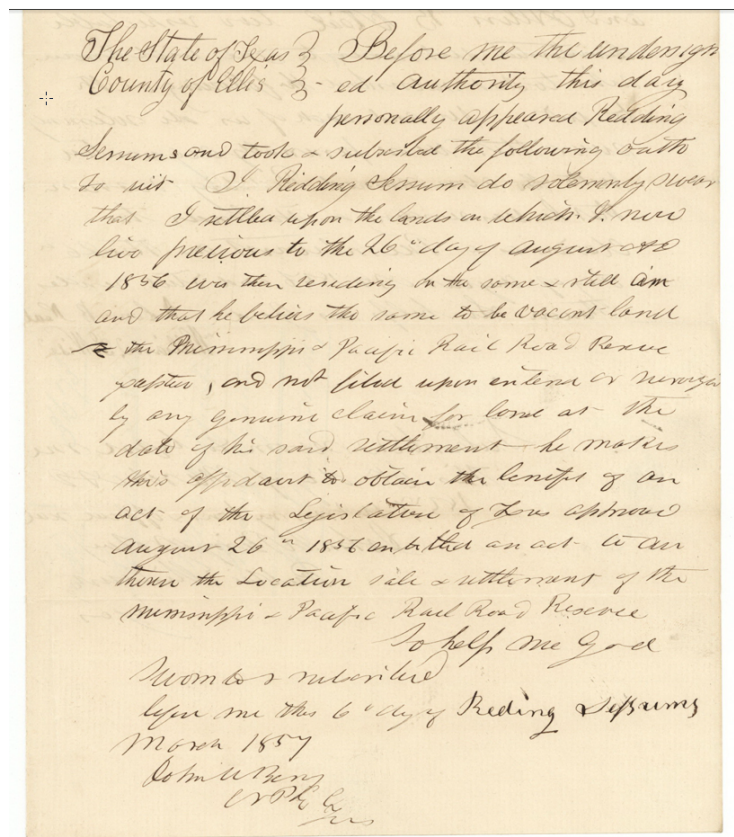 The State of Texas } Before me the undersign
County of Ellis } ed authority this day
personally appeared Redding
Sessums and took & subscribed the following oath
to wit I. Redding Sessum do solemnly swear
that I settled upon the lands on which I. now
live previous to the 26th day of August AD
1856 was then residing on the same & still am
and that he believes the same to be vacant land
the Mississippi & Pacific Rail Road Reserve
, and not filed upon entered or
by any genuine claim for land at the
date of his said settlement he makes
this affidavit to obtain the benefit of an
act of the Legislature of Texas approved
August 26th 1856 entitled an act to au
therise the Location sale & settlement of the
Mississippi & Pacific Rail Road Reserve
So help me God
Sworn to & subscribed
before me this 6th day of Reding Sessums
March 1857
John